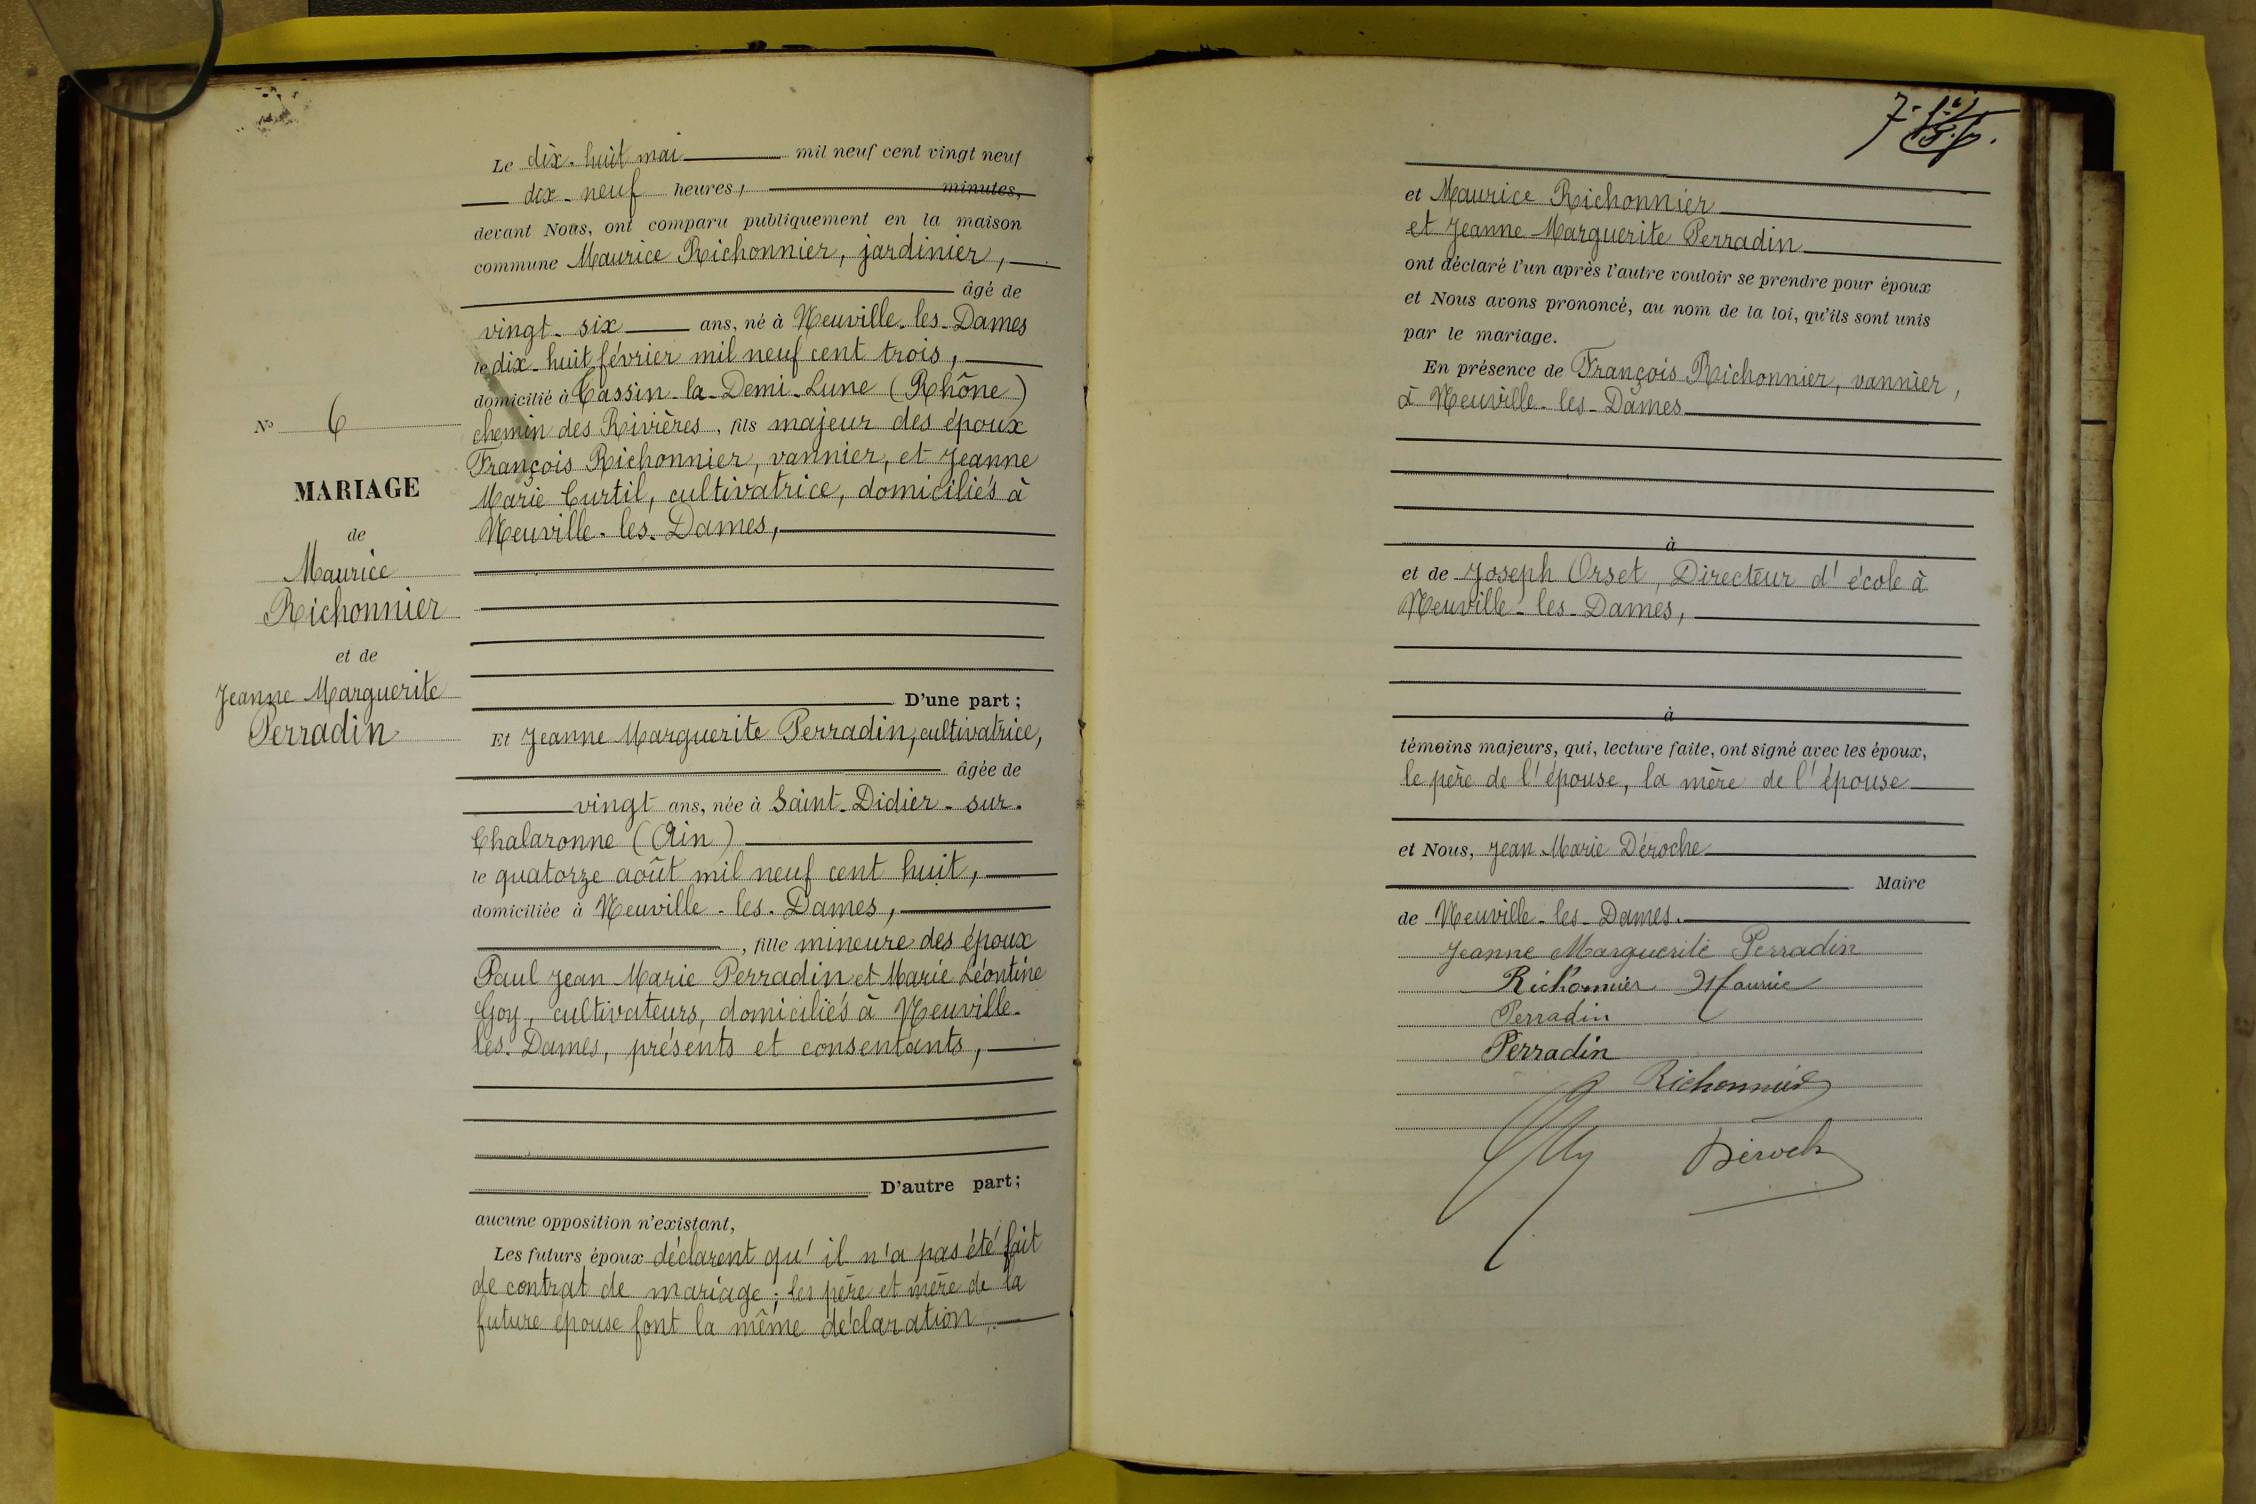 N° 6
MARIAGE
de
Maurice
Richonnier
et de
Jeanne Marguerite
Perradin
Le dix-huit mai mil neuf cent vingt neuf
dix-neuf heures, minutes,
devant Nous, ont comparu publiquement en la maison
commune Maurice Richonnier, jardinier,
âgé de
vingt-six ans, né à Neuville-les-Dames
le dix-huit février mil neuf cent trois,
domicilié à Tassin-la-Demi-Lune (Rhône)
chemin des Rivières, fils majeur des époux
François Richonnier, vannier, et Jeanne
Marie Curtil, cultivatrice, domiciliés à
Neuville-les-Dames,
D'une part;
Et Jeanne Marguerite Perradin, cultivatrice,
âgée de
vingt ans, née à Saint-Didier-sur-
Chalaronne (Ain)
le quatorze août mil neuf cent huit,
domiciliée à Neuville-les-Dames,
, fille mineure des époux
Paul Jean Marie Perradin et Marie Léontine
Goy, cultivateurs, domiciliés à Neuville-
les-Dames, présents et consentants,
D'autre part;
aucune opposition n'existant,
Les futurs époux déclarent qu'il n'a pas été fait
de contrat de mariage; les père et mère de la
future épouse font la même déclaration,
et Maurice Richonnier
et Jeanne Marguerite Perradin
ont déclaré l'un après l'autre vouloir se prendre pour époux
et Nous avons prononcé, au nom de la loi, qu'ils sont unis
par le mariage.
En présence de François Richonnier, vannier,
à Neuville-les-Dames
à
et de Joseph Orset, Directeur d'école à
Neuville-les-Dames,
à
témoins majeurs, qui, lecture faite, ont signé avec les époux,
le père de l'épouse, la mère de l'épouse
et Nous, Jean Marie Déroche
Maire
de Neuville-les-Dames.
Jeanne Marguerite Perradin
Richonnier Maurice
Perradin
Perradin
Richonnier
Déroche